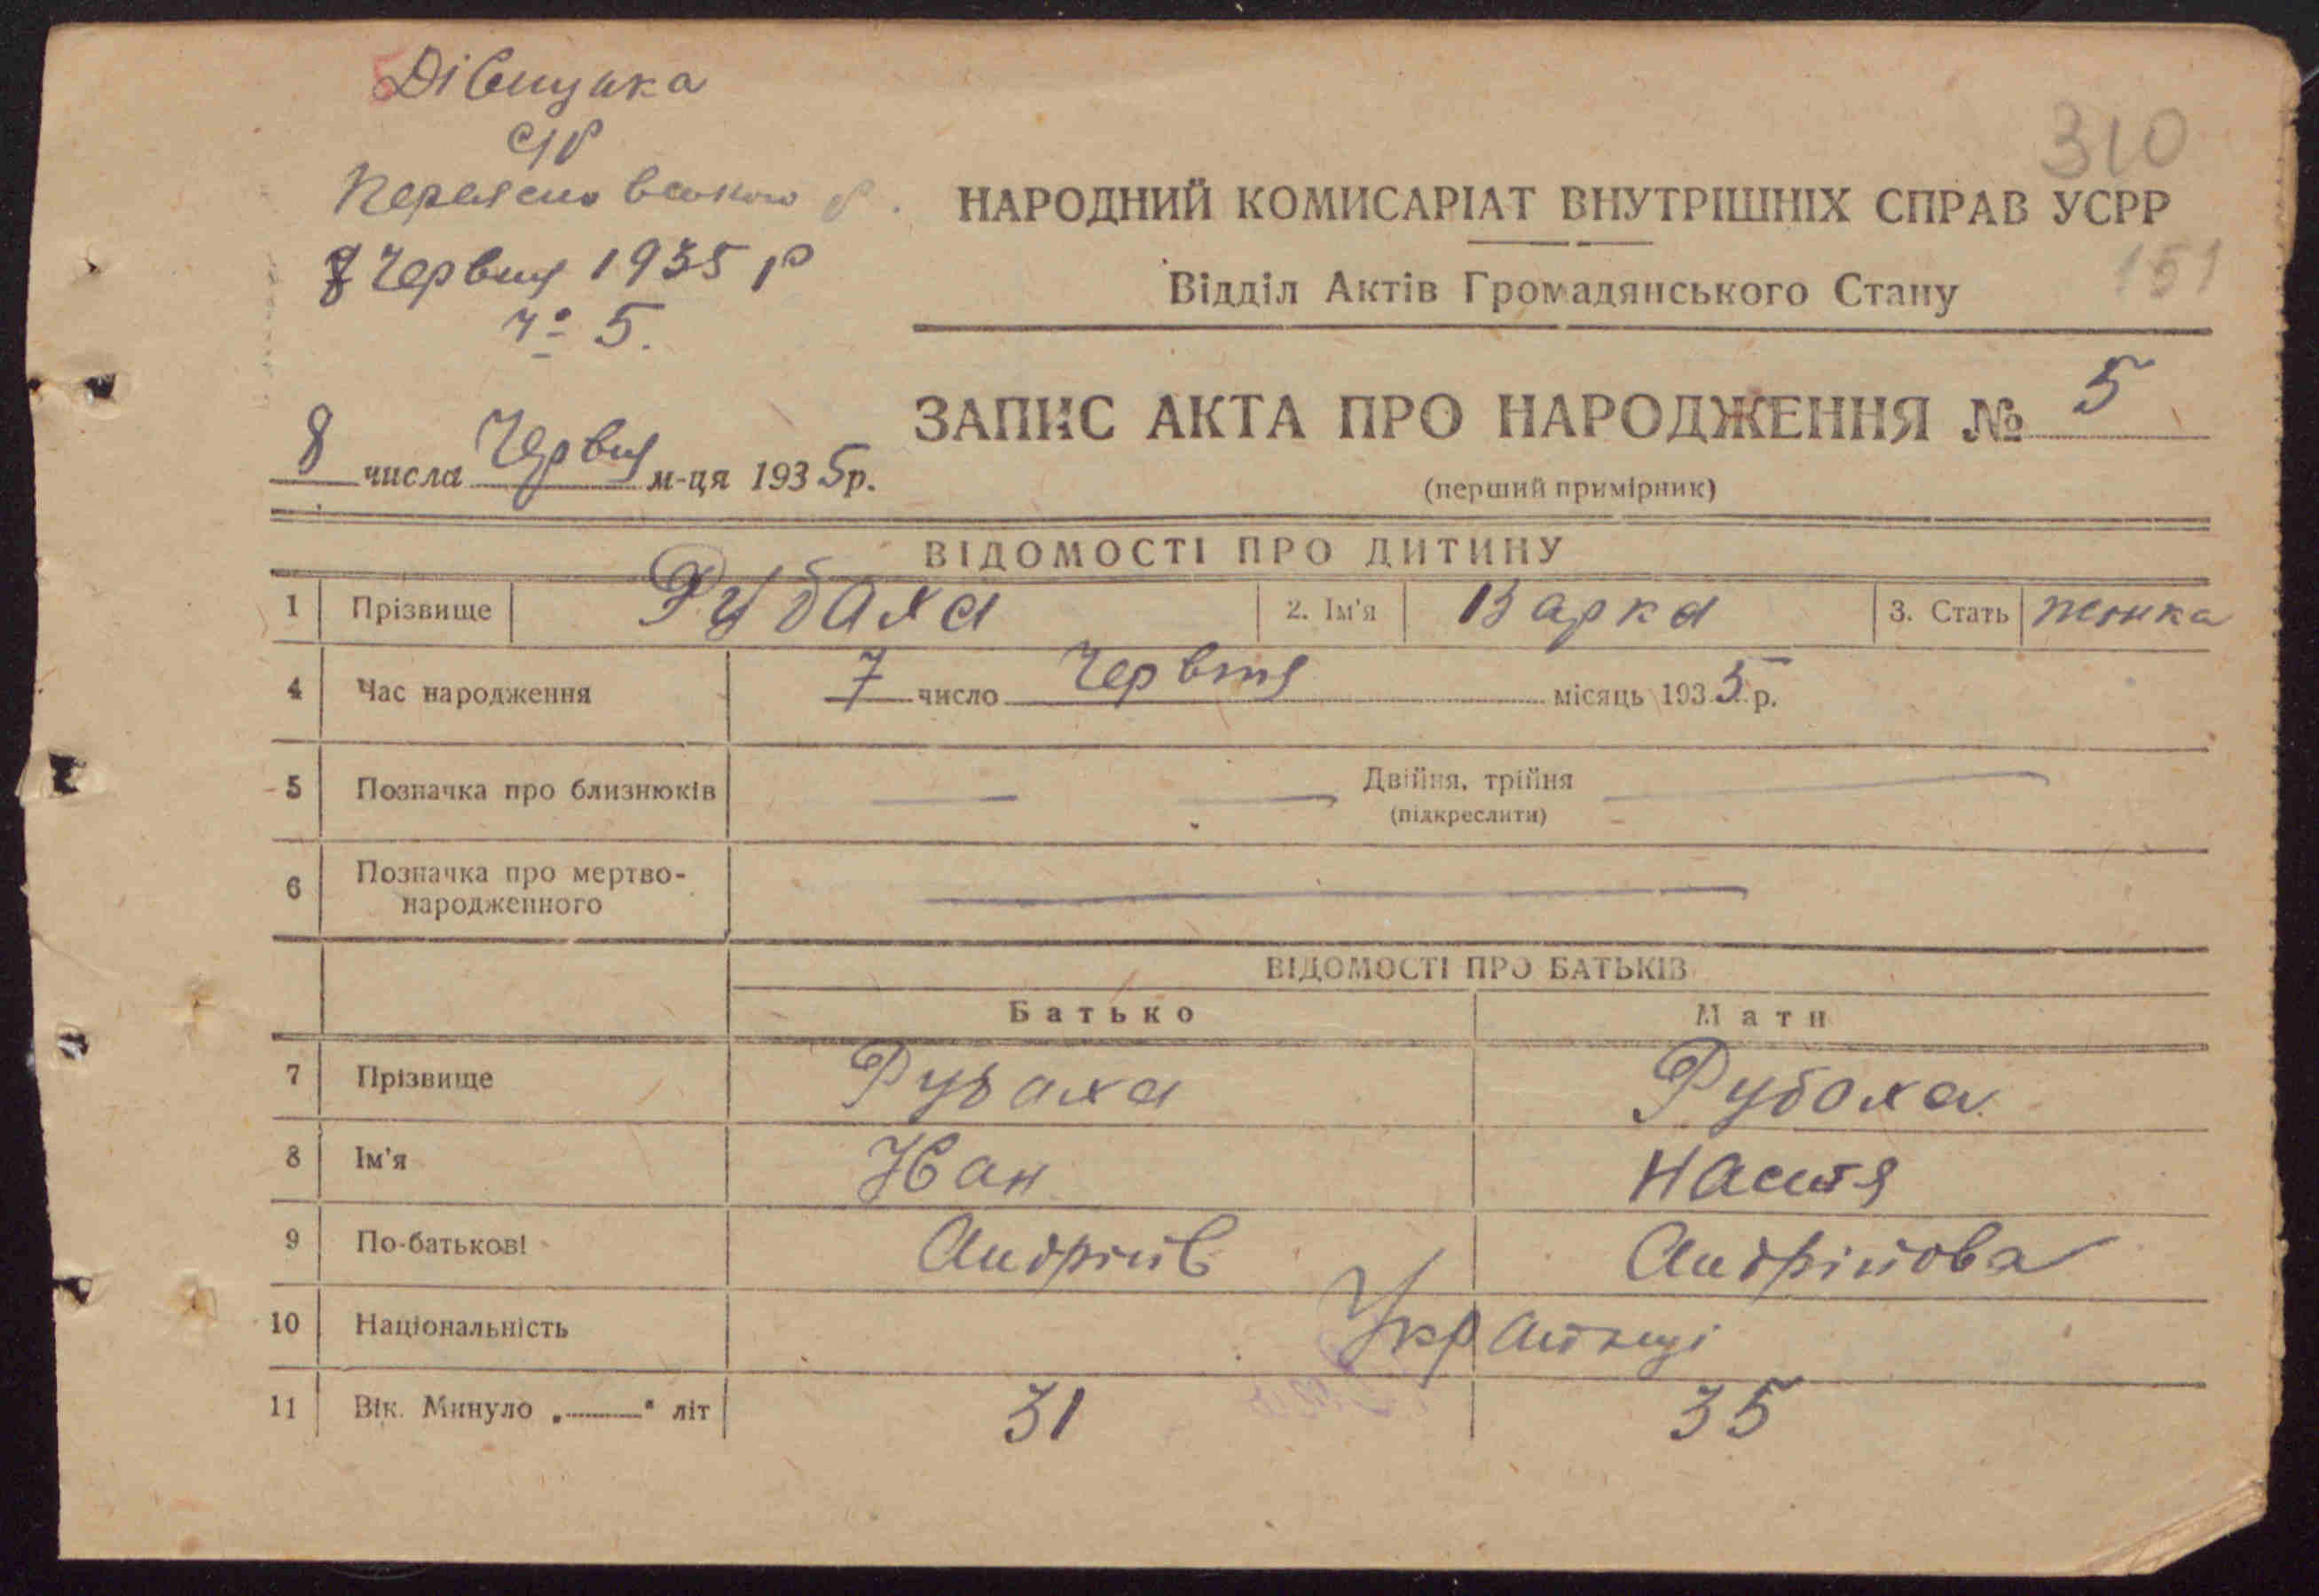 Дівицька
с/р
Переяславського р.
8 Червня 1935 р
№ 5.
310
НАРОДНИЙ КОМИСАРІАТ ВНУТРІШНІХ СПРАВ УСРР
151
Відділ Актів Громадянського Стану
ЗАПИС АКТА ПРО НАРОДЖЕННЯ № 5
8 числа Червня м-ця 1935 р.
(перший примірник)
ВІДОМОСТІ ПРО ДИТИНУ
1 Прізвище Рубаха 2. Ім'я Варка 3. Стать жінка
4 Час народження 7 число Червня місяць 1935 р.
5 Позначка про близнюків Двійня, трійня
(підкреслити)
6 Позначка про мертво-
народженного
ВІДОМОСТІ ПРО БАТЬКІВ
Батько Мати
7 Прізвище Рубаха Рубаха
8 Ім'я Іван Настя
9 По-батькові Андріїв Андрійова
10 Національність Українці
11 Вік. Минуло „ " літ 31 35